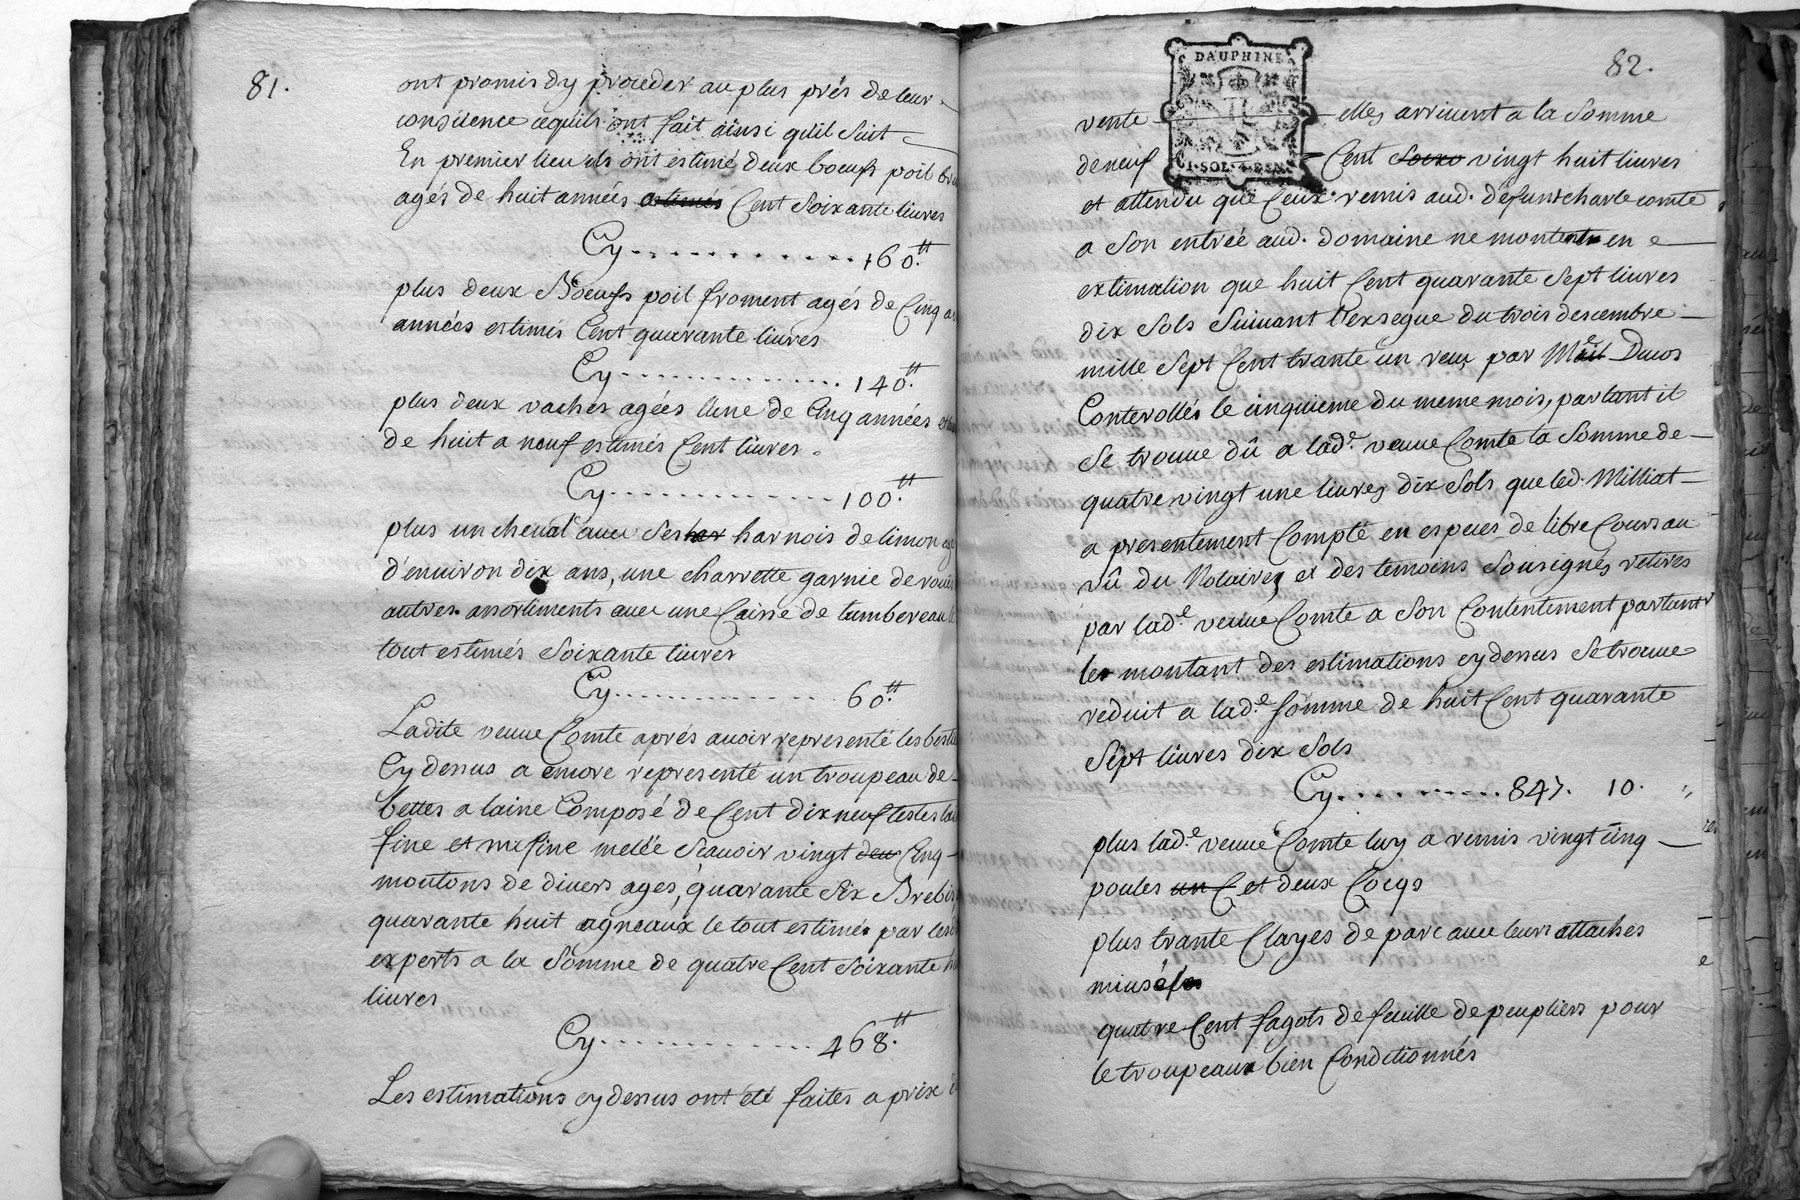 81.
ont promis d'y proceder au plus près de leur
consçience ce quils ont fait ainsi quil suit
En premier lieu ils ont estimé deux boeufs poil
agés de huit années estimés Cent Soixante livres
Cy............160.tt
plus deux Boeufs poil froment agés de Cinq a
années estimés Cent quarante livres
Cy............140.tt
plus deux vaches agées lune de Cinq années et
de huit a neuf estimés Cent livres.
Cy............100.tt
plus un cheval avec ses har harnois de limon
d'environ dix ans, une charrette garnie de roues
autres assortiments avec une Caisse de tumbereau le
tout estimés Soixante livres
Cy............60.tt
Ladite veuve Comte aprés avoir representé les
Cy dessus a encore representé un troupeau de
bettes a laine Composé de Cent dix neuf testes
fine et mifine melée Scavoir vingt deu Cinq
moutons de divers ages, quarante Six Brebis
quarante huit agneaux le tout estimés par les
experts a la Somme de quatre Cent Soixante
livres
Cy............468.tt
Les estimations cy dessus ont été faites a prix
82.
DAUPHINE
1·SOL·4·DEN
vente elles arrivent a la Somme
de neuf Cent Soixo vingt huit livres
et attendu que Ceux remis aud. défunt charle comte
a Son entrée aud. domaine ne montent en
extimation que huit Cent quarante Sept livres
dix Sols Suivant l'exsegue du trois descembre
mille Sept Cent trante un reçu par Me Duos
Conterollés le cinquieme du meme mois, partant il
Se trouve dû a lad.e veuve Comte la Somme de
quatre vingt une livres dix Sols que led. Milliat
a presentement Compté en especes de libre Cours au
vû du Notaire, et des temoins Sousignés retirés
par lad.e veuve Comte a Son Contentement partant
le montant des estimations cy dessus Se trouve
reduit a lad.e Somme de huit Cent quarante
Sept livres dix Sols
Cy..........847. 10.
plus lad.e veuve Comte luy a remis vingt cinq
poules un C et deux Coqs
plus trante Clayes de parc avec leurs attaches
quatre Cent fagots de feuille de peupliers pour
le troupeaux bien Conditionnés